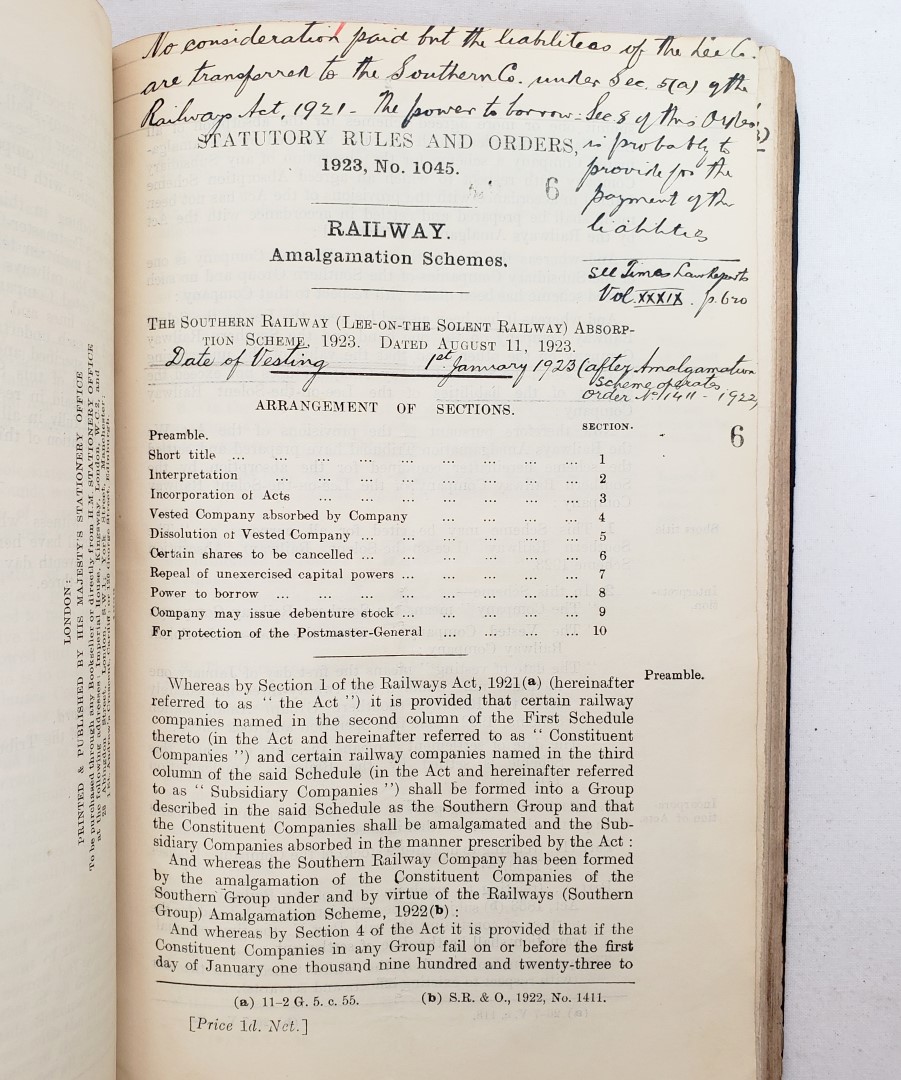 No consideration paid but the liabilities of the Lee Co.
are transferred to the Southern Co. under Sec. 5(a) of the
Railways Act, 1921 - The power to borrow - Sec 8 of this Order
is probably to
provide for the
payment of the
liabilities
STATUTORY RULES AND ORDERS,
1923, No. 1045.
6
RAILWAY.
Amalgamation Schemes.
see Times Law Reports
Vol. XXXIX. p. 620
THE SOUTHERN RAILWAY (LEE-ON-THE SOLENT RAILWAY) ABSORP-
TION SCHEME, 1923. DATED AUGUST 11, 1923.
Date of Vesting 1st January 1923 (after Amalgamation
scheme operates
Order No 1411 - 1922)
ARRANGEMENT OF SECTIONS.
SECTION.
6
Preamble.
Short title ... ... ... ... ... ... ... ... 1
Interpretation ... ... ... ... ... ... ... 2
Incorporation of Acts ... ... ... ... ... ... 3
Vested Company absorbed by Company ... ... ... 4
Dissolution of Vested Company ... ... ... ... ... 5
Certain shares to be cancelled ... ... ... ... ... 6
Repeal of unexercised capital powers ... ... ... ... 7
Power to borrow ... ... ... ... ... ... ... 8
Company may issue debenture stock ... ... ... ... 9
For protection of the Postmaster-General ... ... ... ... 10
Preamble.
Whereas by Section 1 of the Railways Act, 1921(a) (hereinafter
referred to as " the Act ") it is provided that certain railway
companies named in the second column of the First Schedule
thereto (in the Act and hereinafter referred to as " Constituent
Companies ") and certain railway companies named in the third
column of the said Schedule (in the Act and hereinafter referred
to as " Subsidiary Companies ") shall be formed into a Group
described in the said Schedule as the Southern Group and that
the Constituent Companies shall be amalgamated and the Sub-
sidiary Companies absorbed in the manner prescribed by the Act :
And whereas the Southern Railway Company has been formed
by the amalgamation of the Constituent Companies of the
Southern Group under and by virtue of the Railways (Southern
Group) Amalgamation Scheme, 1922(b) :
And whereas by Section 4 of the Act it is provided that if the
Constituent Companies in any Group fail on or before the first
day of January one thousand nine hundred and twenty-three to
(a) 11-2 G. 5. c. 55. (b) S.R. & O., 1922, No. 1411.
[Price 1d. Net.]
LONDON:
PRINTED & PUBLISHED BY HIS MAJESTY'S STATIONERY OFFICE
To be purchased through any Bookseller or directly from H.M. STATIONERY OFFICE
at the following addresses: Imperial House, Kingsway, London, W.C.2, and